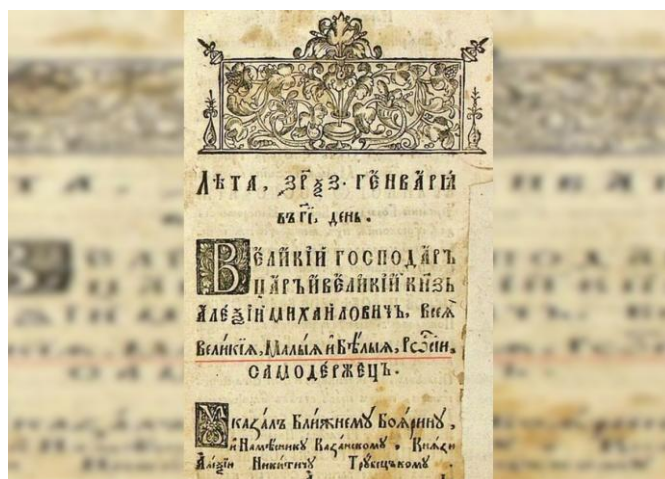 Лѣта, ҂зр҃ѯз. геⷩ҇варїѧ
въ г҃і, день.
Вели́кїй господа́рь
ца́рь и҆ вели́кїй кн҃зь
Алеѯі́й михаиловичь, всеѧ̀
Вели́кїѧ, Ма́лыѧ и҆ Бѣ́лыѧ, Рѡсі́и,
самоде́ржецъ.
Указа́лъ Бли́жнему Боѧ́рину,
и҆ Намѣ́стнику Каза́нскому. Кнѧ́зю
Алеѯі́ю Ники́тичу Трубецькому.